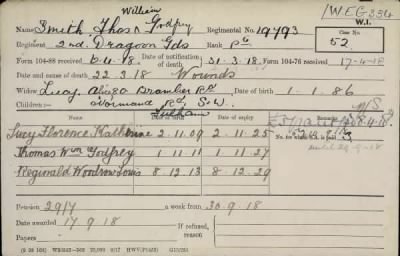 William
/W.E.G/334
W.I.
Name Smith Thos Godfrey Regimental No. 19793 Case No.
Regiment 2nd. Dragoon Gds Rank Pte 52.
Form 104-88 received 6-4-18. Date of notification of death 31-3-18. Form 104-76 received 17-4-18
Date and cause of death 22.3.18 Wounds
Widow Lucy, Date of birth 1.1.86
Children:— Normand Rd, S.W.
Fulham
Date of birth Date of expiry
Lucy Florence Katherine 2.11.09 2.11.25
Thomas Wm Godfrey 1.11.11 1.11.27
Reginald Woodrow Louis 8.12.13 8-12.29
Pension 29/7 a week from 30.9.18
Date awarded 17 9 18 If refused, reason
Papers